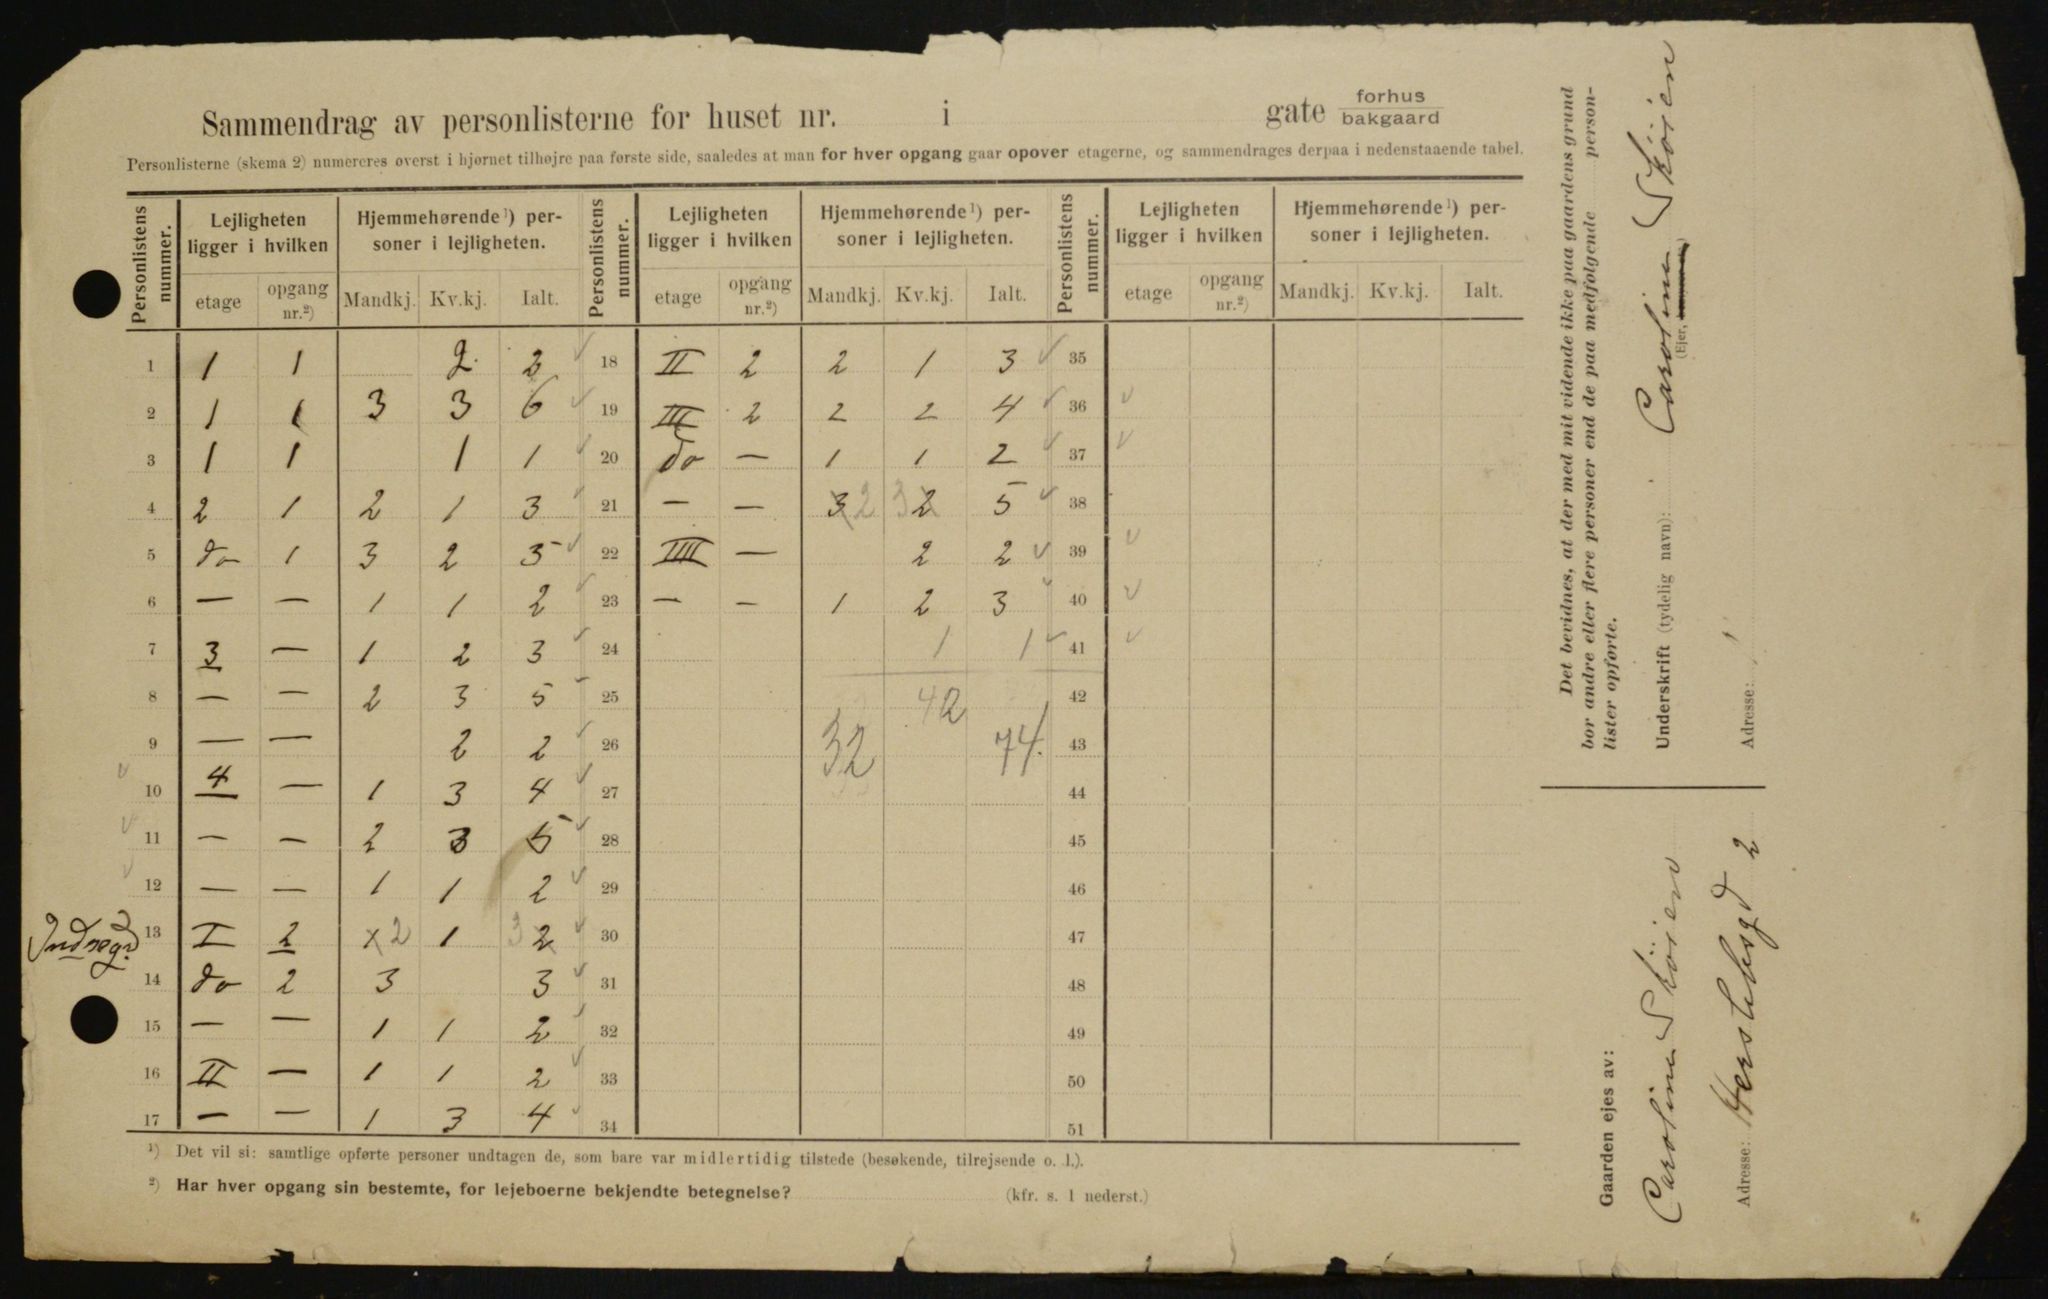 Sammendrag av personlisterne for huset nr. i gate forhus bakgaard
Personlisterne (skema 2) numereres øverst i hjørnet tilhøjre paa første side, saaledes at man for hver opgang gaar opover etagerne, og sammendrages derpaa i nedenstaaende tabel.
Personlistens nummer. Lejligheten ligger i hvilken Hjemmehørende¹) personer i lejligheten. Personlistens nummer. Lejligheten ligger i hvilken Hjemmehørende¹) personer i lejligheten. Personlistens nummer. Lejligheten ligger i hvilken Hjemmehørende¹) personer i lejligheten.
etage opgang nr.²) Mandkj. Kv.kj. Ialt. etage opgang nr.²) Mandkj. Kv.kj. Ialt. etage opgang nr.²) Mandkj. Kv.kj. Ialt.
1 1 1 2 2 ✓ 18 II 2 2 1 3 ✓ 35
2 1 1 3 3 6 ✓ 19 III 2 2 2 4 ✓ 36 ✓
3 1 1 1 1 ✓ 20 do — 1 1 2 ✓ 37 ✓
4 2 1 2 1 3 ✓ 21 — — 3 2 3 2 5 ✓ 38
5 do 1 3 2 5 ✓ 22 IIII — 2 2 ✓ 39 ✓
6 — — 1 1 2 ✓ 23 — — 1 2 3 ✓ 40 ✓
7 3 — 1 2 3 ✓ 24 1 1 ✓ 41 ✓
8 — — 2 3 5 ✓ 25 42 42
9 — — 2 2 ✓ 26 32 74. 43
✓ 10 4 — 1 3 4 ✓ 27 44
✓ 11 — — 2 3 5 ✓ 28 45
✓ 12 — — 1 1 2 ✓ 29 46
13 I 2 x 2 1 3 2 ✓ 30 47
14 do 2 3 3 ✓ 31 48
15 — — 1 1 2 ✓ 32 49
16 II — 1 1 2 ✓ 33 50
17 — — 1 3 4 ✓ 34 51
¹) Det vil si: samtlige opførte personer undtagen de, som bare var midlertidig tilstede (besøkende, tilrejsende o. l.).
²) Har hver opgang sin bestemte, for lejeboerne bekjendte betegnelse? (kfr. s. 1 nederst.)
Det bevidnes, at der med mit vidende ikke paa gaardens grund
bor andre eller flere personer end de paa medfølgende person-
lister opførte.
Underskrift (tydelig navn): Caroline Sköien
(Ejer,
Adresse:
Gaarden ejes av:
Caroline Sköien
Adresse: Herslebsgd 2